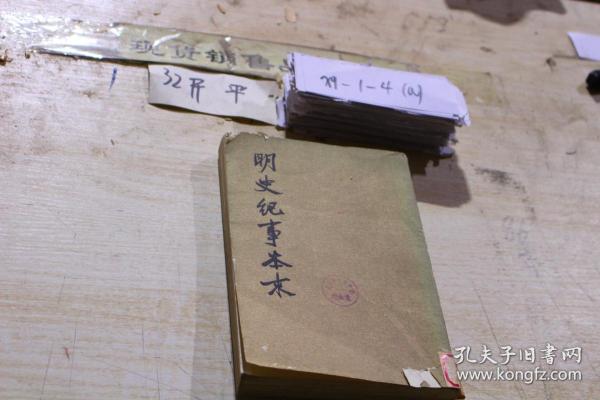 现货销售
32开 平
明史纪事本末
孔夫子旧書网
www.kongfz.com